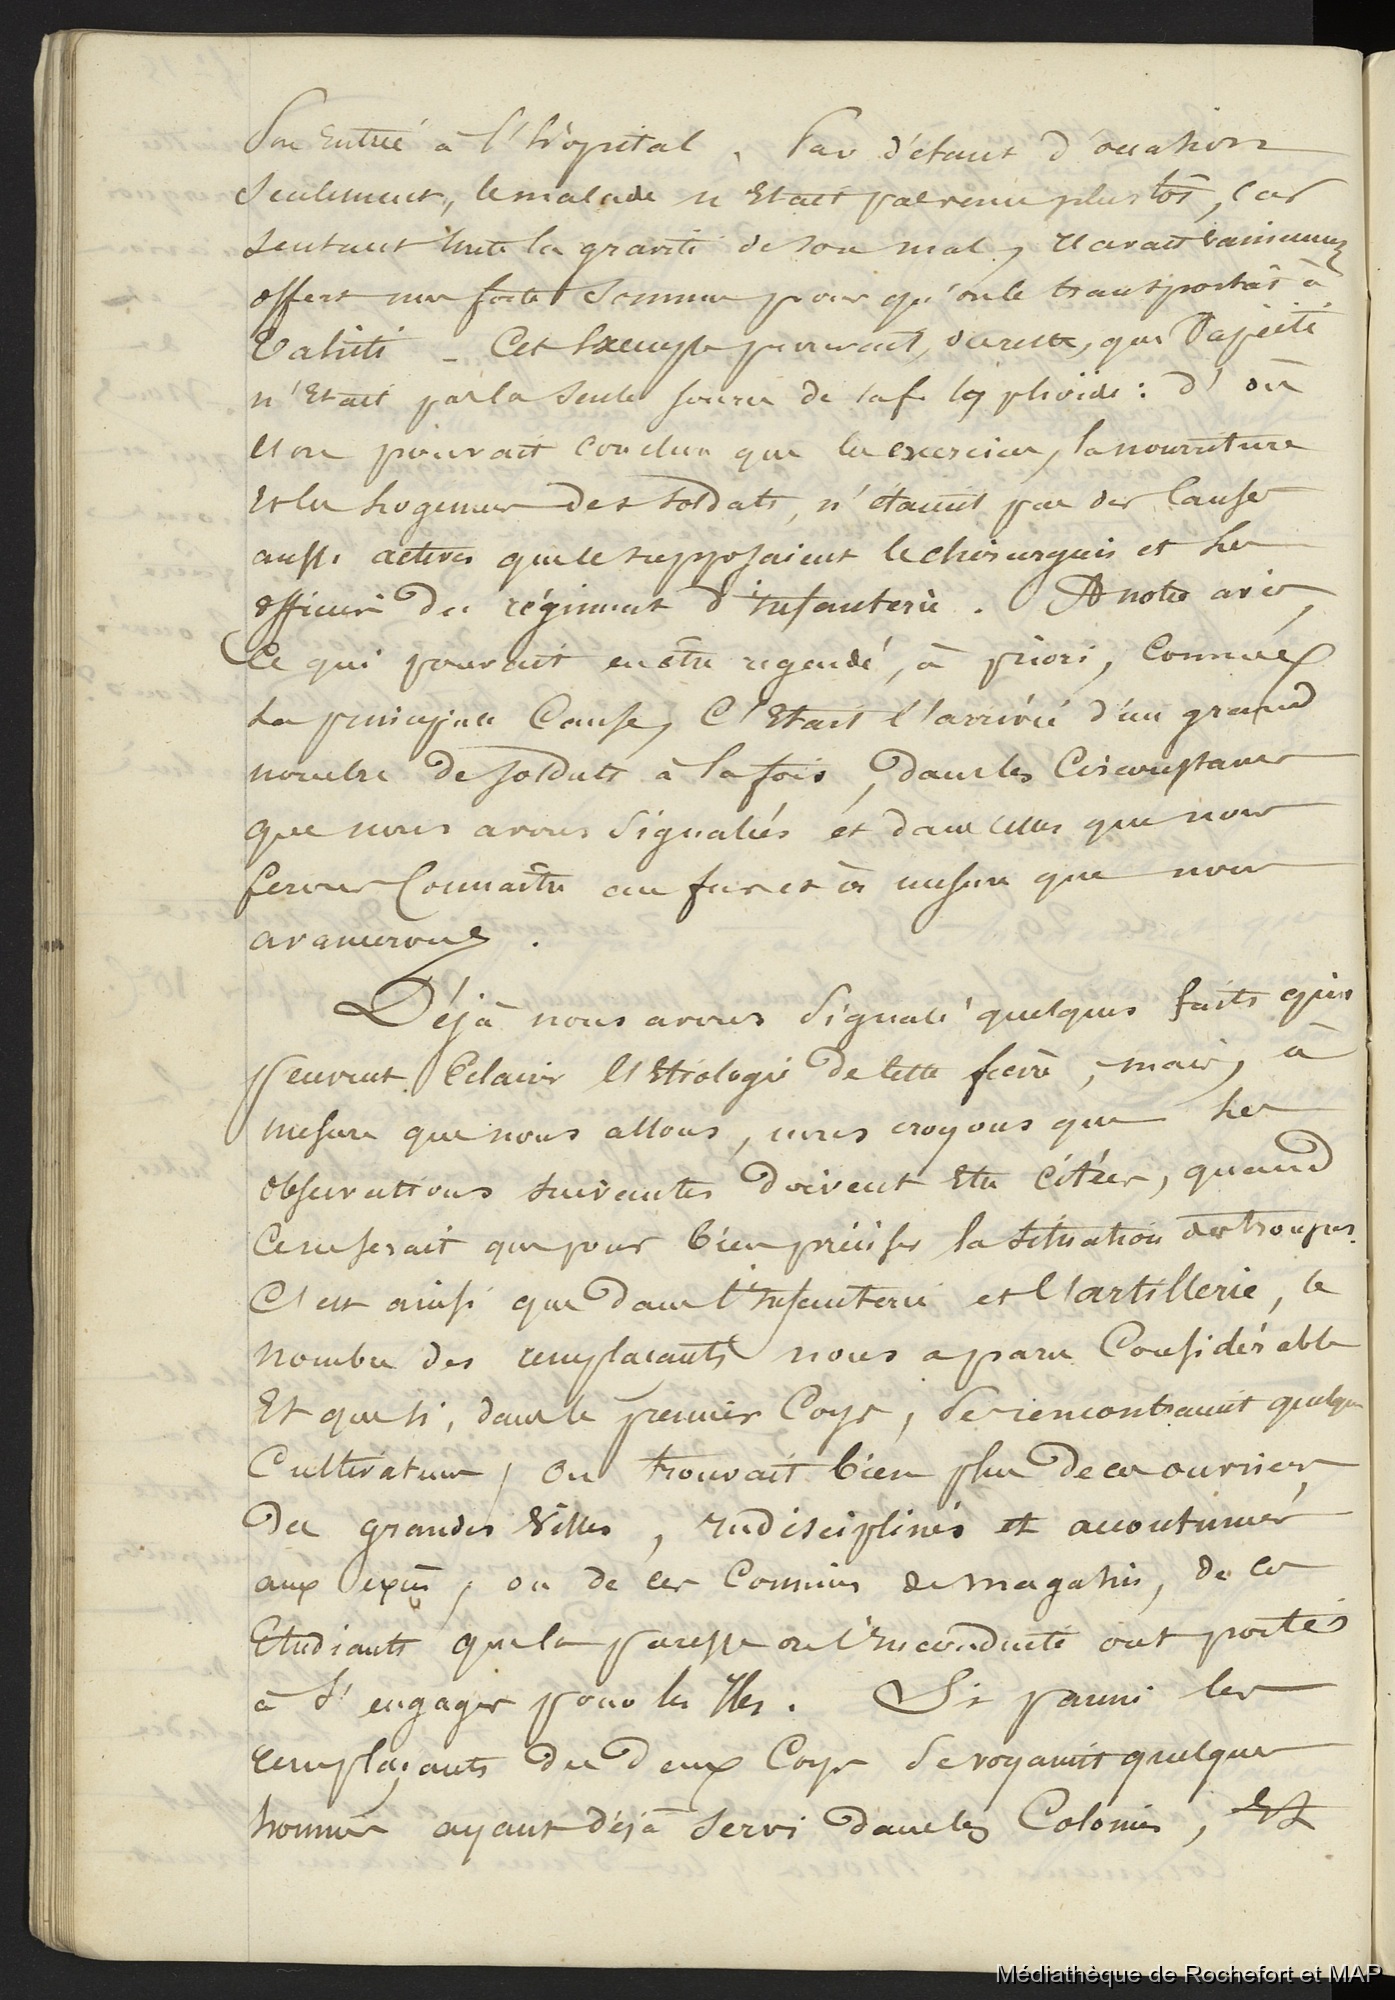 Son Entrée à l'hôpital. Par défaut d'occasion
Seulement, le malade n'Etait pas venu plus tôt, car
sentant toute la gravité de son mal, il avait vainement
offert une forte Somme pour qu'on le transportât à
Tahiti - Cet Exemple prouvait, du reste, que Papeiti
n'Etait pas la Seule source de la f. typhoïde: d'où
l'on pouvait conclure que les exercices, la nourriture
Et les logemens des soldats, n'étaient pas des Causes
aussi actives que le supposaient le chirurgien et les
officiers du régiment d'infanterie. A notre avis,
Ce qui pouvait en être regardé, à priori, Comme
La principale Cause, C'Etait l'arrivée d'un grand
nombre de soldats à la fois, dans les Circonstances
que nous avons Signalées et dans celles que nous
ferons Connaître au fur et à mesure que nous
avancerons.
Déjà nous avons Signalé quelques faits qui
peuvent Eclairer l'Etiologie de cette fièvre, mais, à
mesure que nous allons, nous croyons que les
observations suivantes doivent Etre Citées, quand
Ce ne serait que pour bien préciser la situation des troupes.
C'est ainsi que dans l'infanterie et l'artillerie, le
nombre des remplacants nous a paru Considérable
Et que si, dans le premier Corps, Se rencontraient quelques
Cultivateurs, On trouvait bien plus de ces ouvriers
des grandes Villes, indisciplinés et accoutumés
aux excès, ou de ces Commis de magasins, de ces
Etudiants que la paresse ou l'inconduite ont portés
à S'engager pour les Iles. Si parmi les
remplaçants des deux Corps Se voyaient quelques
hommes ayant déjà Servi dans les Colonies, Et
Médiathèque de Rochefort et MAP